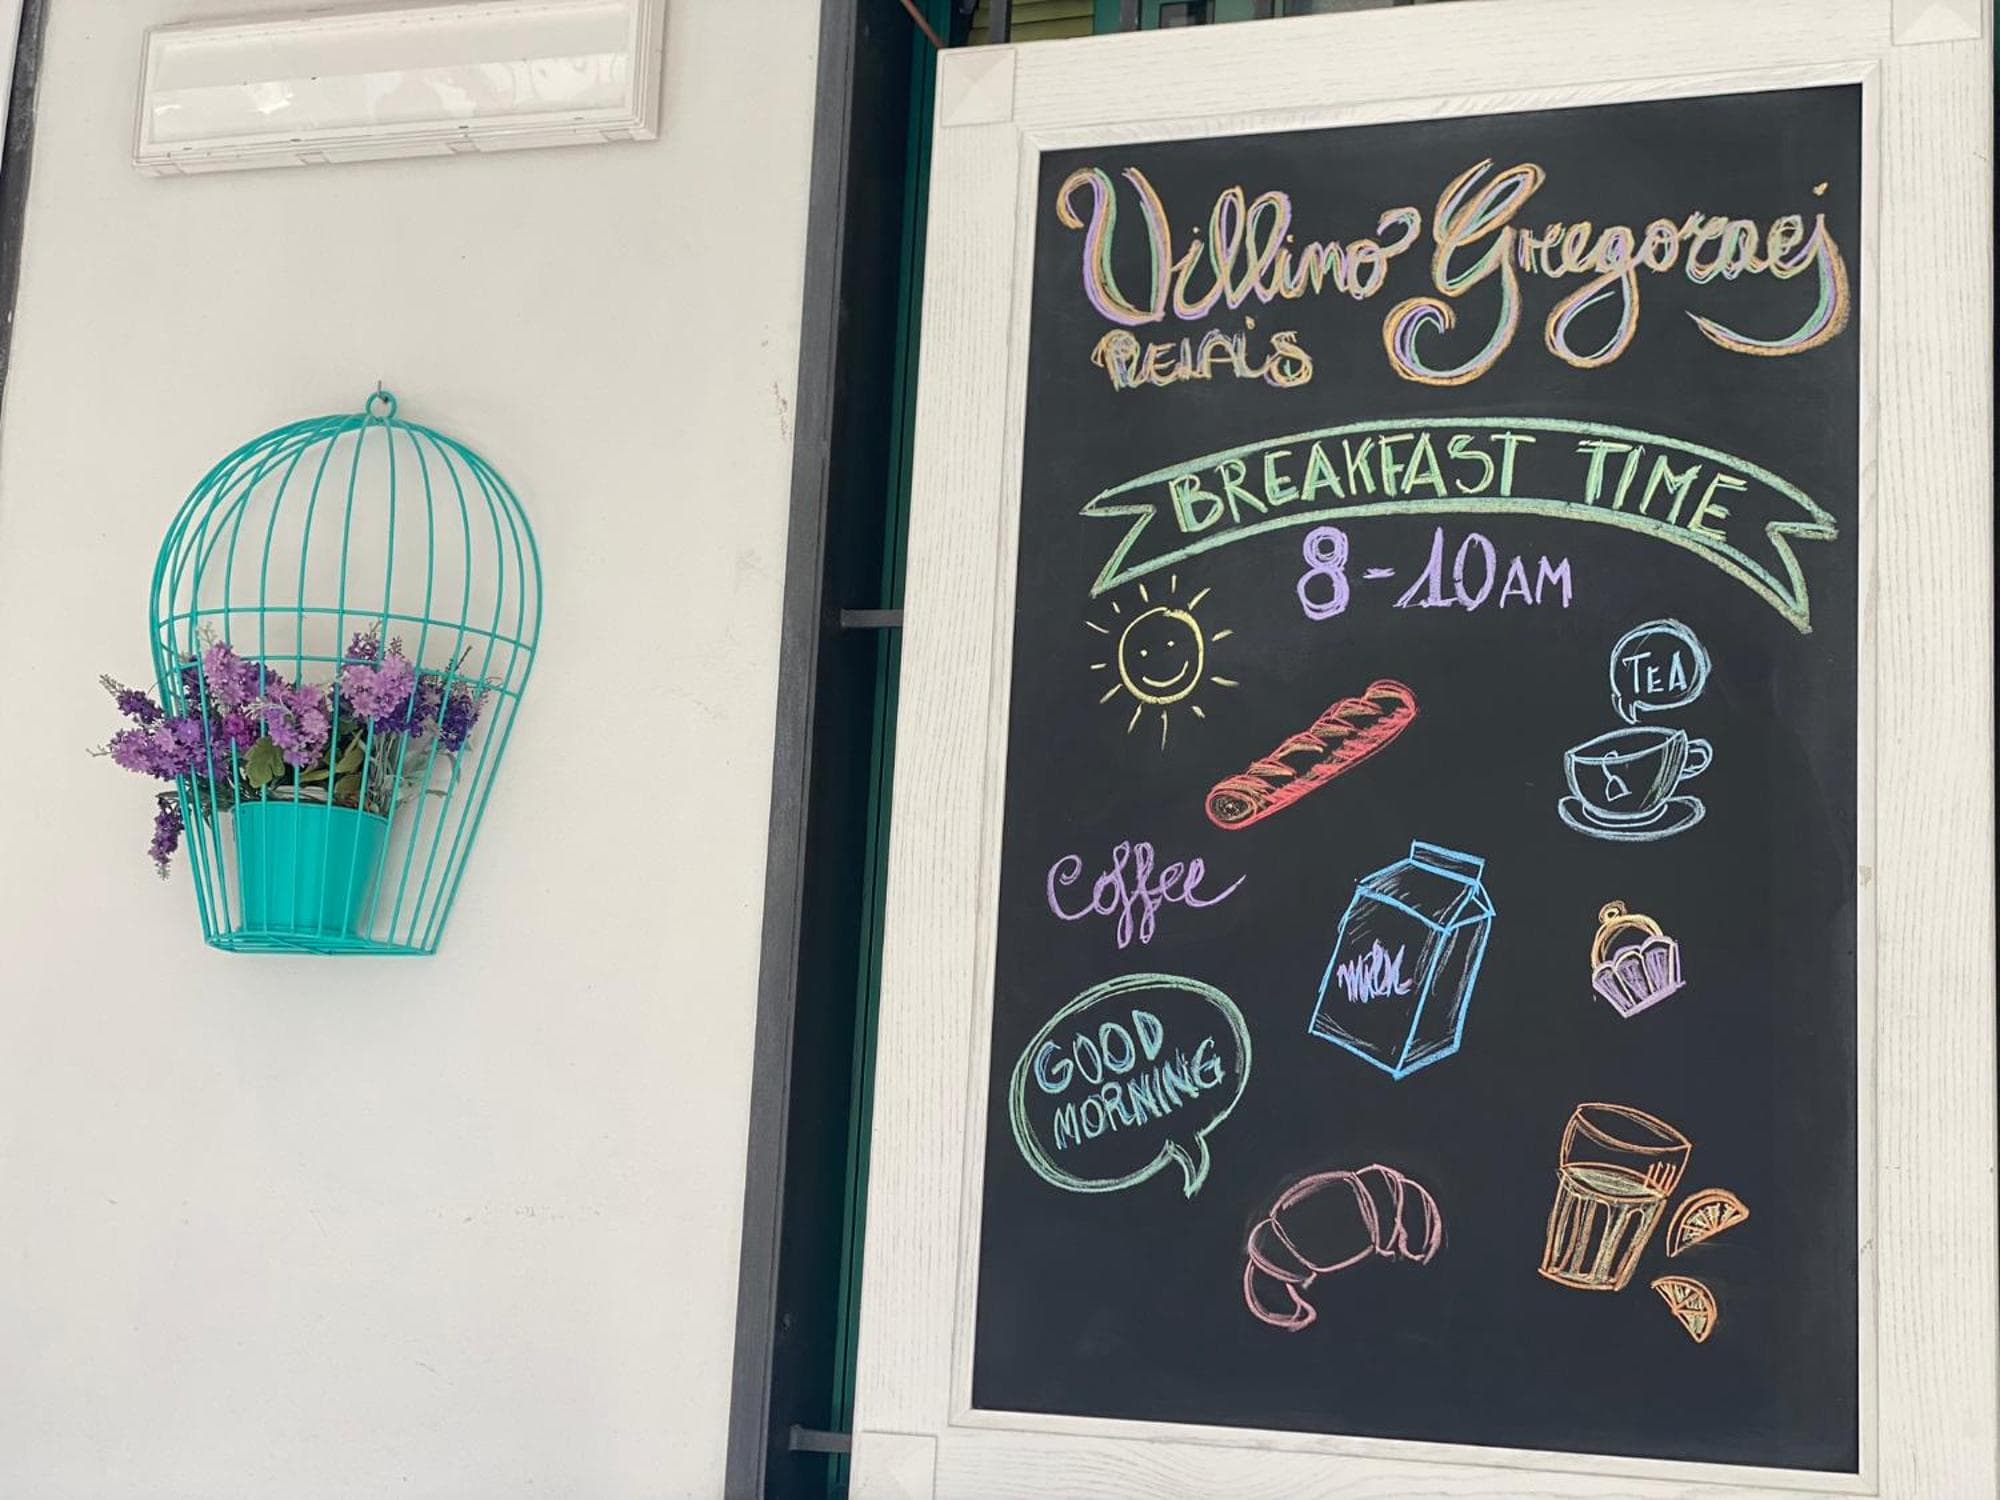 Villino Gregoraci
RELAiS
BREAKFAST TIME
8-10AM
TEA
Coffee
milk
GOOD
MORNING